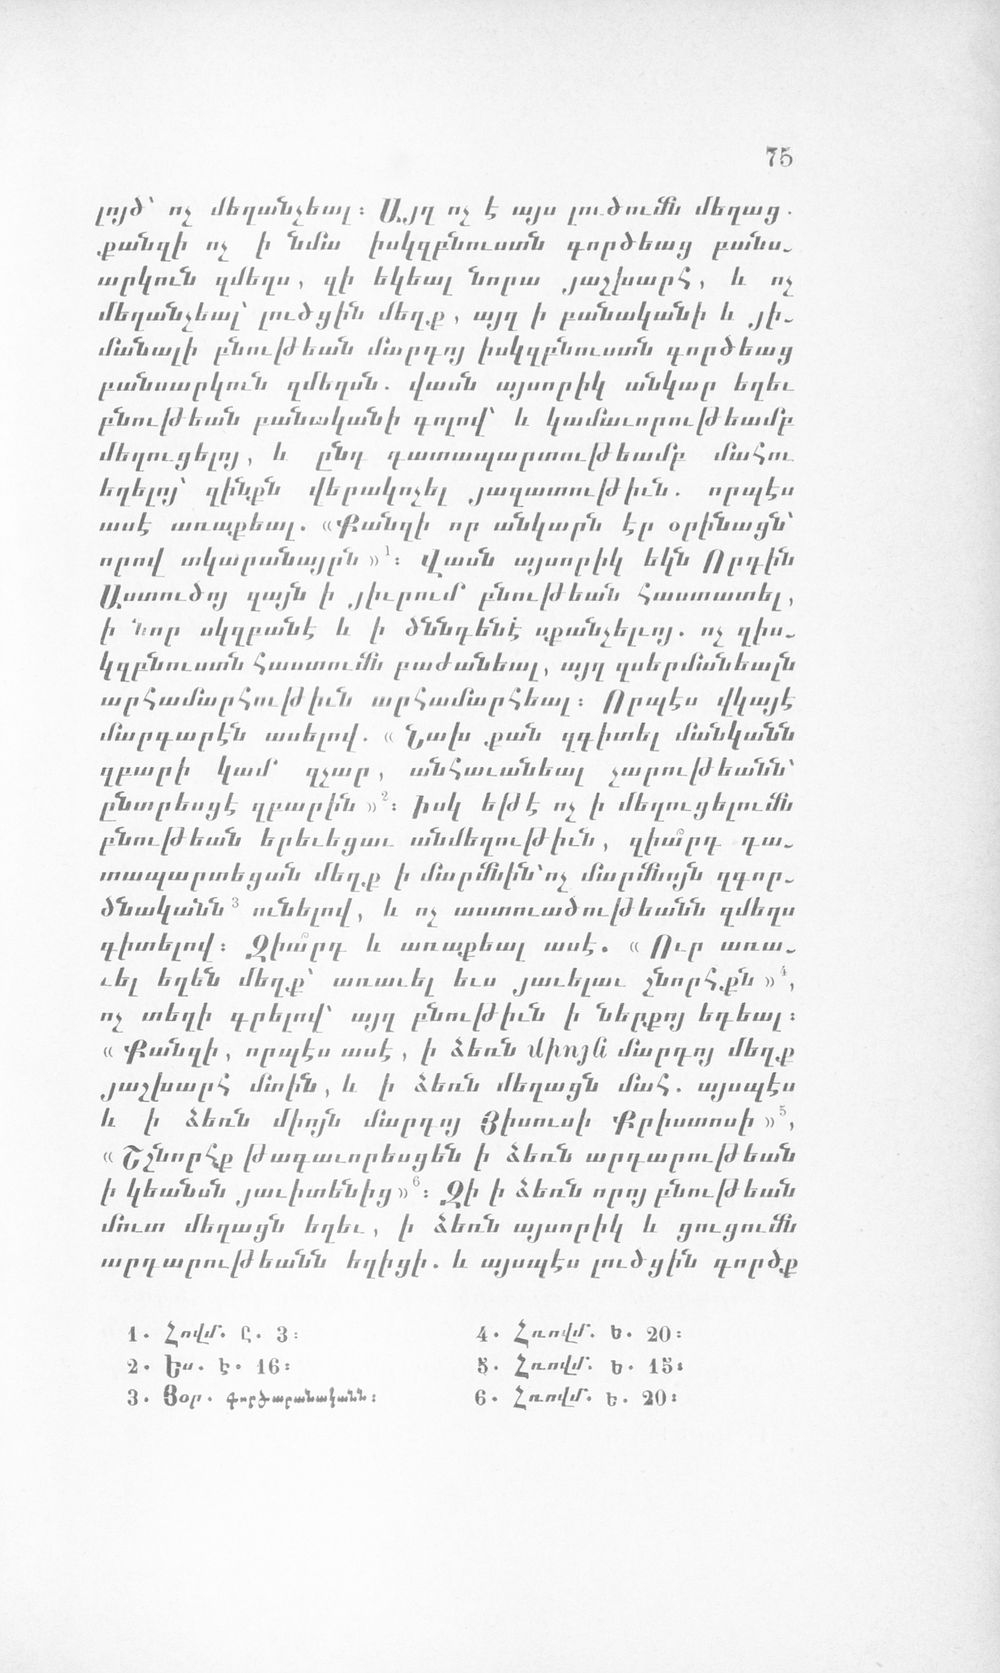 75
լոյծ՝ ոչ մեղանչեալ։ Այղ ոչ է այս լուծումն մեղաց.
քանզի ոչ ի նմա իսկզբնուստն գործեաց բանս-
արկուն զմեղս, զի եկեալ նորա յաշխարհ, և ոչ
մեղանչեալ՝ լուծցին մեղք, այղ ի բանականի և յի-
մանալի բնութեան մարդոյ իսկզբնուստն գործեաց
բանսարկուն զմեղսն. վասն այսորիկ անկար եղեւ
բնութեան բանականի գոլով՝ և կամաւորութեամբ
մեղուցելոյ, և ընդ դատապարտութեամբ մահու
եղելոյ՝ զինքն վերակոչել յազատութիւն. որպէս
ասէ առաքեալ. «Քանզի որ անկարն էր օրինացն՝
որով տկարանայրն»¹։ Վասն այսորիկ եկն Որդին
Աստուծոյ զայն ի յիւրում բնութեան հաստատել,
ի նոր սկզբանէ և ի ծննդենէ սքանչելւոյ. ոչ զիս-
կզբնուստն հաստումն բաժանեալ, այղ զսերմանեալն
արհամարհութիւն արհամարհեալ։ Որպէս վկայէ
մարգարէն ասելով. «Նախ քան զգիտել մանկանն
զբարի կամ զչար, անհաւանեալ չարութեանն՝
ընտրեսցէ զբարին»²։ Իսկ եթէ ոչ ի մեղուցելումն
բնութեան երեւեցաւ անմեղութիւն, զիա՞րդ դա-
տապարտեցան մեղք ի մարմնին՝ ոչ մարմնոյն զգոր-
ծնականն³ ունելով, և ոչ աստուածութեանն զմեղս
գիտելով։ Զիա՞րդ և առաքեալ ասէ. «Ուր առա-
ւել եղեն մեղք՝ առաւել եւս յաւելաւ շնորհքն»⁴,
ոչ տեղի գրելով՝ այղ բնութիւն ի ներքոյ եդեալ։
«Քանզի, որպէս ասէ, ի ձեռն միոյն մարդոյ մեղք
յաշխարհ մտին, և ի ձեռն մեղացն մահ. այսպէս
և ի ձեռն միոյն մարդոյ Յիսուսի Քրիստոսի»⁵,
«Շշնորհք թագաւորեսցեն ի ձեռն արդարութեան
ի կեանսն յաւիտենից»⁶։ Զի ի ձեռն որոյ բնութեան
մուտ մեղացն եղեւ, ի ձեռն այսորիկ և ցուցումն
արդարութեանն եղիցի. և այսպէս լուծցին գործք
1. Հովմ. Ը. 3։
2. Ես. Է. 16։
3. Յօր. գործարանականն։
4. Հռովմ. Ե. 20։
5. Հռովմ. Ե. 15։
6. Հռովմ. Ե. 20։